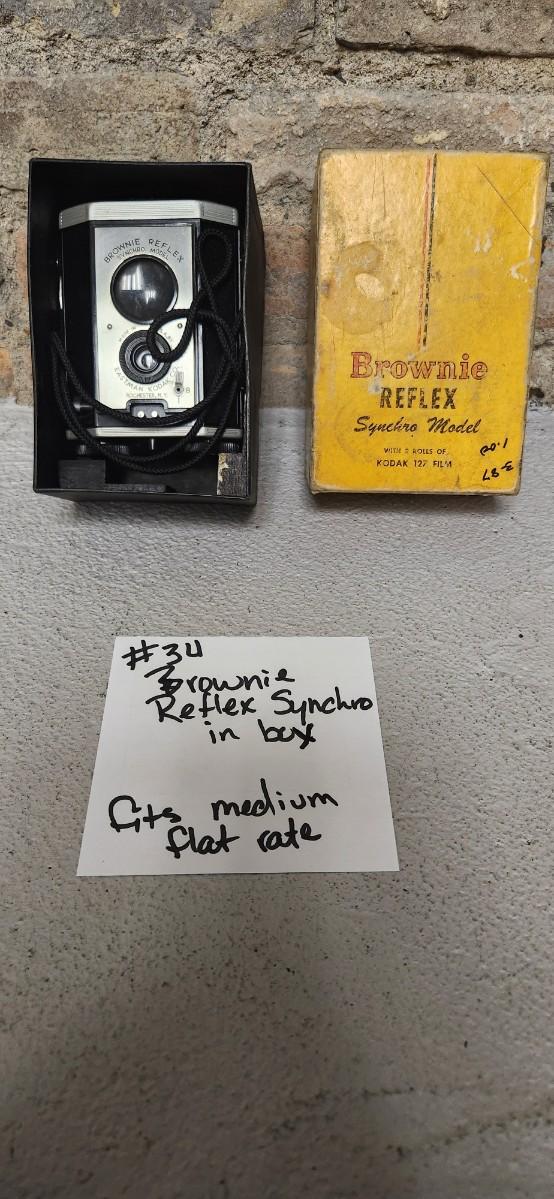 BROWNIE REFLEX
SYNCHRO MODEL
EASTMAN KODAK CO.
ROCHESTER, N.Y.
B
Brownie
REFLEX
Synchro Model
WITH 2 ROLLS OF
KODAK 127 FILM
#34
Brownie
Reflex Synchro
in box
Fits medium
flat rate